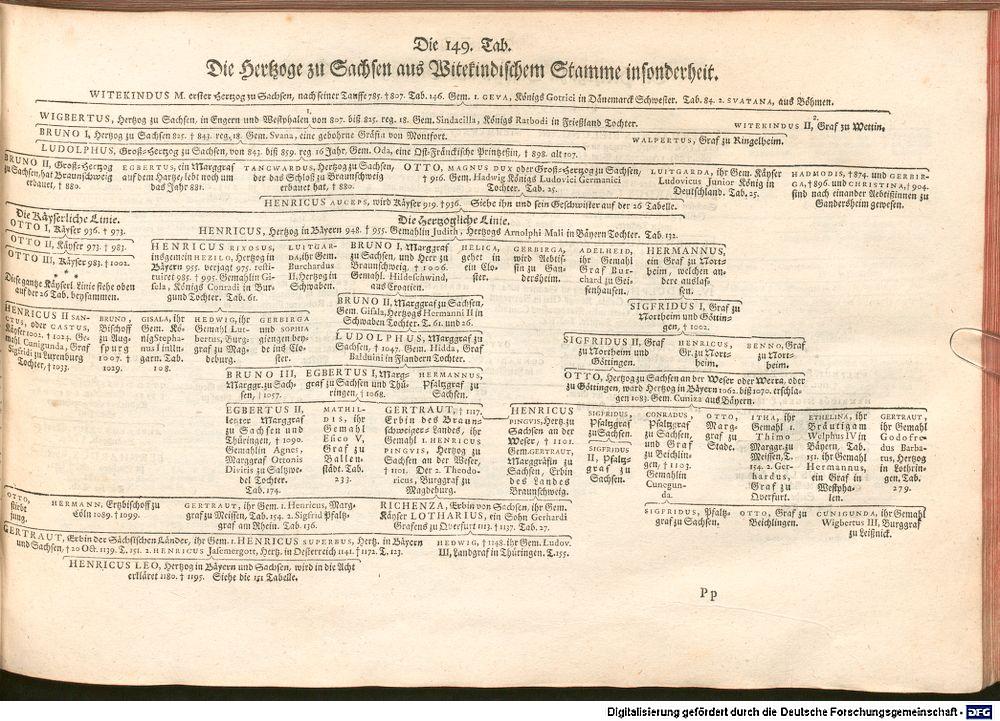 Die 149. Tab.
Die Hertzoge zu Sachsen aus Witekindischem Stamme insonderheit.
WITEKINDUS M. erster Hertzog zu Sachsen, nach seiner Tauffe 785. † 807. Tab. 146. Gem. 1. GEVA, Königs Gotrici in Dänemarck Schwester. Tab. 84. 2. SVATANA, aus Böhmen.
1.
WIGBERTUS, Hertzog zu Sachsen, in Engern und Westphalen von 807. biß 825. reg. 18. Gem. Sindacilla, Königs Ratbodi in Frießland Tochter.
2.
WITEKINDUS II, Graf zu Wettin.
BRUNO I, Hertzog zu Sachsen 825. † 843. reg. 18. Gem. Svana, eine gebohrne Gräfin von Montfort.
WALPERTUS, Graf zu Ringelheim.
LUDOLPHUS, Groß-Hertzog zu Sachsen, von 843. biß 859. reg 16 Jahr, Gem. Oda, eine Ost-Fränckische Printzeßin, † 898. alt 107.
BRUNO II, Groß-Hertzog
zu Sachsen, hat Braunschweig
erbauet, † 880.
EGBERTUS, ein Marggraf
auf dem Hartze, lebt noch um
das Jahr 881.
TANCWARDUS, Hertzog zu Sachsen,
der das Schloß zu Braunschweig
erbauet hat, † 880.
OTTO, MAGNUS DUX oder Groß-Hertzog zu Sachsen,
† 916. Gem. Hadwig Königs Ludovici Germanici
Tochter. Tab. 25.
LUITGARDA, ihr Gem. Käyser
Ludovicus Junior König in
Deutschland. Tab. 25.
HADMODIS, †874. und GERBIR-
GA, †896. und CHRISTINA, † 904.
sind nach einander Aebtißinnen zu
Gandersheim gewesen.
HENRICUS AUCEPS, wird Käyser 919. † 936. Siehe ihn und sein Geschwister auf der 26 Tabelle.
Die Käyserliche Linie.
OTTO I, Käyser 936. † 973.
OTTO II, Käyser 973. † 983.
OTTO III, Käyser 983. † 1002.
* * *
Diese gantze Käyserl. Linie stehe oben
auf der 26 Tab. beysammen.
Die Hertzogliche Linie.
HENRICUS, Hertzog in Bäyern 948. † 955. Gemahlin Judith, Hertzogs Arnolphi Mali in Bäyern Tochter. Tab. 132.
HENRICUS RIXOSUS,
insgemein HEZILO, Hertzog in
Bäyern 955. verjagt 975. resti-
tuiret 985. † 995. Gemahlin Gi-
sela, Königs Conradi in Bur-
gund Tochter. Tab. 61.
LUITGAR-
DA, ihr Gem.
Burchardus
II. Hertzog in
Schwaben.
BRUNO I, Marggraf
zu Sachsen, und Herr zu
Braunschweig, † 1006.
Gemahl. Hildeschwind,
aus Croatien.
HELICA,
gehet in
ein Clo-
ster.
GERBIRGA,
wird Aebtis-
sin zu Gan-
dersheim.
ADELHEID,
ihr Gemahl
Graf Bur-
chard zu Gei-
senhausen.
HERMANNUS,
ein Graf zu Nort-
heim, welchen an-
dere auslas-
sen.
HENRICUS II SAN-
CTUS, oder CASTUS,
Käyser 1002. † 1024. Ge-
mahl Cunigunda, Graf
Sigfridi zu Luxenburg
Tochter, † 1033.
BRUNO,
Bischoff
zu Aug-
spurg
1007. †
1029.
GISALA, ihr
Gem. Kö-
nig Stepha-
nus I in Un-
garn. Tab.
108.
HEDWIG, ihr
Gemahl Lut-
bertus, Burg-
graf zu Mag-
deburg.
GERBIRGA
und SOPHIA
giengen bey-
de ins Clo-
ster.
BRUNO II, Marggraf zu Sachsen,
Gem. Gisala, Hertzogs Hermanni II in
Schwaben Tochter. T. 61. und 26.
LUDOLPHUS, Marggraf zu
Sachsen, † 1047. Gem. Hidda, Graf
Balduini in Flandern Tochter.
SIGFRIDUS I, Graf zu
Northeim und Göttin-
gen, † 1002.
SIGFRIDUS II, Graf
zu Northeim und
Göttingen.
HENRICUS,
Gr. zu Nort-
heim.
BENNO, Graf
zu Nort-
heim.
BRUNO III,
Marggr. zu Sach-
sen, † 1057.
EGBERTUS I, Marg-
graf zu Sachsen und Thü-
ringen, † 1068.
HERMANNUS,
Pfaltzgraf zu
Sachsen.
OTTO, Hertzog zu Sachsen an der Weser oder Werra, oder
zu Göttingen, ward Hertzog in Bäyern 1062. biß 1070. erschla-
gen 1083. Gem. Cuniza aus Bäyern.
EGBERTUS II,
letzter Marggraf
zu Sachsen und
Thüringen, † 1090.
Gemahlin Agnes,
Marggraf Ottonis
Divitis zu Saltzwe-
del Tochter.
Tab. 174.
MATHIL-
DIS, ihr
Gemahl
Esico V,
Graf zu
Ballen-
städt. Tab.
233.
GERTRAUT, † 1117.
Erbin des Braun-
schweiger-Landes, ihr
Gemahl 1. HENRICUS
PINGVIS, Hertzog zu
Sachsen an der Weser,
† 1101. Der 2. Theodo-
ricus, Burggraf zu
Magdeburg.
HENRICUS
PINGVIS, Hertz. zu
Sachsen an der
Weser, † 1101.
Gem. GERTRAUT,
Marggräfin zu
Sachsen, Erbin
des Landes
Braunschweig.
SIGFRIDUS,
Pfaltzgraf
zu Sachsen.
SIGFRIDUS
II, Pfaltz-
graf zu
Sachsen.
CONRADUS,
Pfaltzgraf
zu Sachsen,
und Graf
zu Beichlin-
gen, † 1103.
Gemahlin
Cunegun-
da.
OTTO,
Marg-
graf zu
Stade.
ITHA, ihr
Gemahl 1.
Thimo
Marggr. zu
Meissen, T.
154. 2. Ger-
hardus,
Graf zu
Qverfurt.
ETHELINA, ihr
Bräutigam
Welphus IV in
Bäyern, Tab.
151. ihr Gemahl
Hermannus,
ein Graf in
Westpha-
len.
GERTRAUT,
ihr Gemahl
Godofre-
dus Barba-
tus, Hertzog
in Lothrin-
gen. Tab.
279.
OTTO,
stirbt
jung.
HERMANN, Ertzbischoff zu
Cöln 1089. † 1099.
GERTRAUT, ihr Gem. 1. Henricus, Marg-
graf zu Meissen, Tab. 154. 2. Sigfrid Pfaltz-
graf am Rhein. Tab. 136.
RICHENZA, Erbin von Sachsen, ihr Gem.
Käyser LOTHARIUS, ein Sohn Gerhardi
Grafens zu Qverfurt 1113. † 1137. Tab. 27.
SIGFRIDUS, Pfaltz-
graf zu Sachsen.
OTTO, Graf zu
Beichlingen.
CUNIGUNDA, ihr Gemahl
Wigbertus III, Burggraf
zu Leißnick.
GERTRAUT, Erbin der Sächsischen Länder, ihr Gem. 1. HENRICUS SUPERBUS, Hertz. in Bäyern
und Sachsen, † 20 Oct. 1139. T. 151. 2. HENRICUS Jasemergott, Hertz. in Oesterreich 1141. † 1172. T. 123.
HEDWIG, † 1148. ihr Gem. Ludov.
III, Landgraf in Thüringen. T. 155.
HENRICUS LEO, Hertzog in Bäyern und Sachsen, wird in die Acht
erkläret 1180. † 1195. Siehe die 151 Tabelle.
Pp
Digitalisierung gefördert durch die Deutsche Forschungsgemeinschaft - DFG